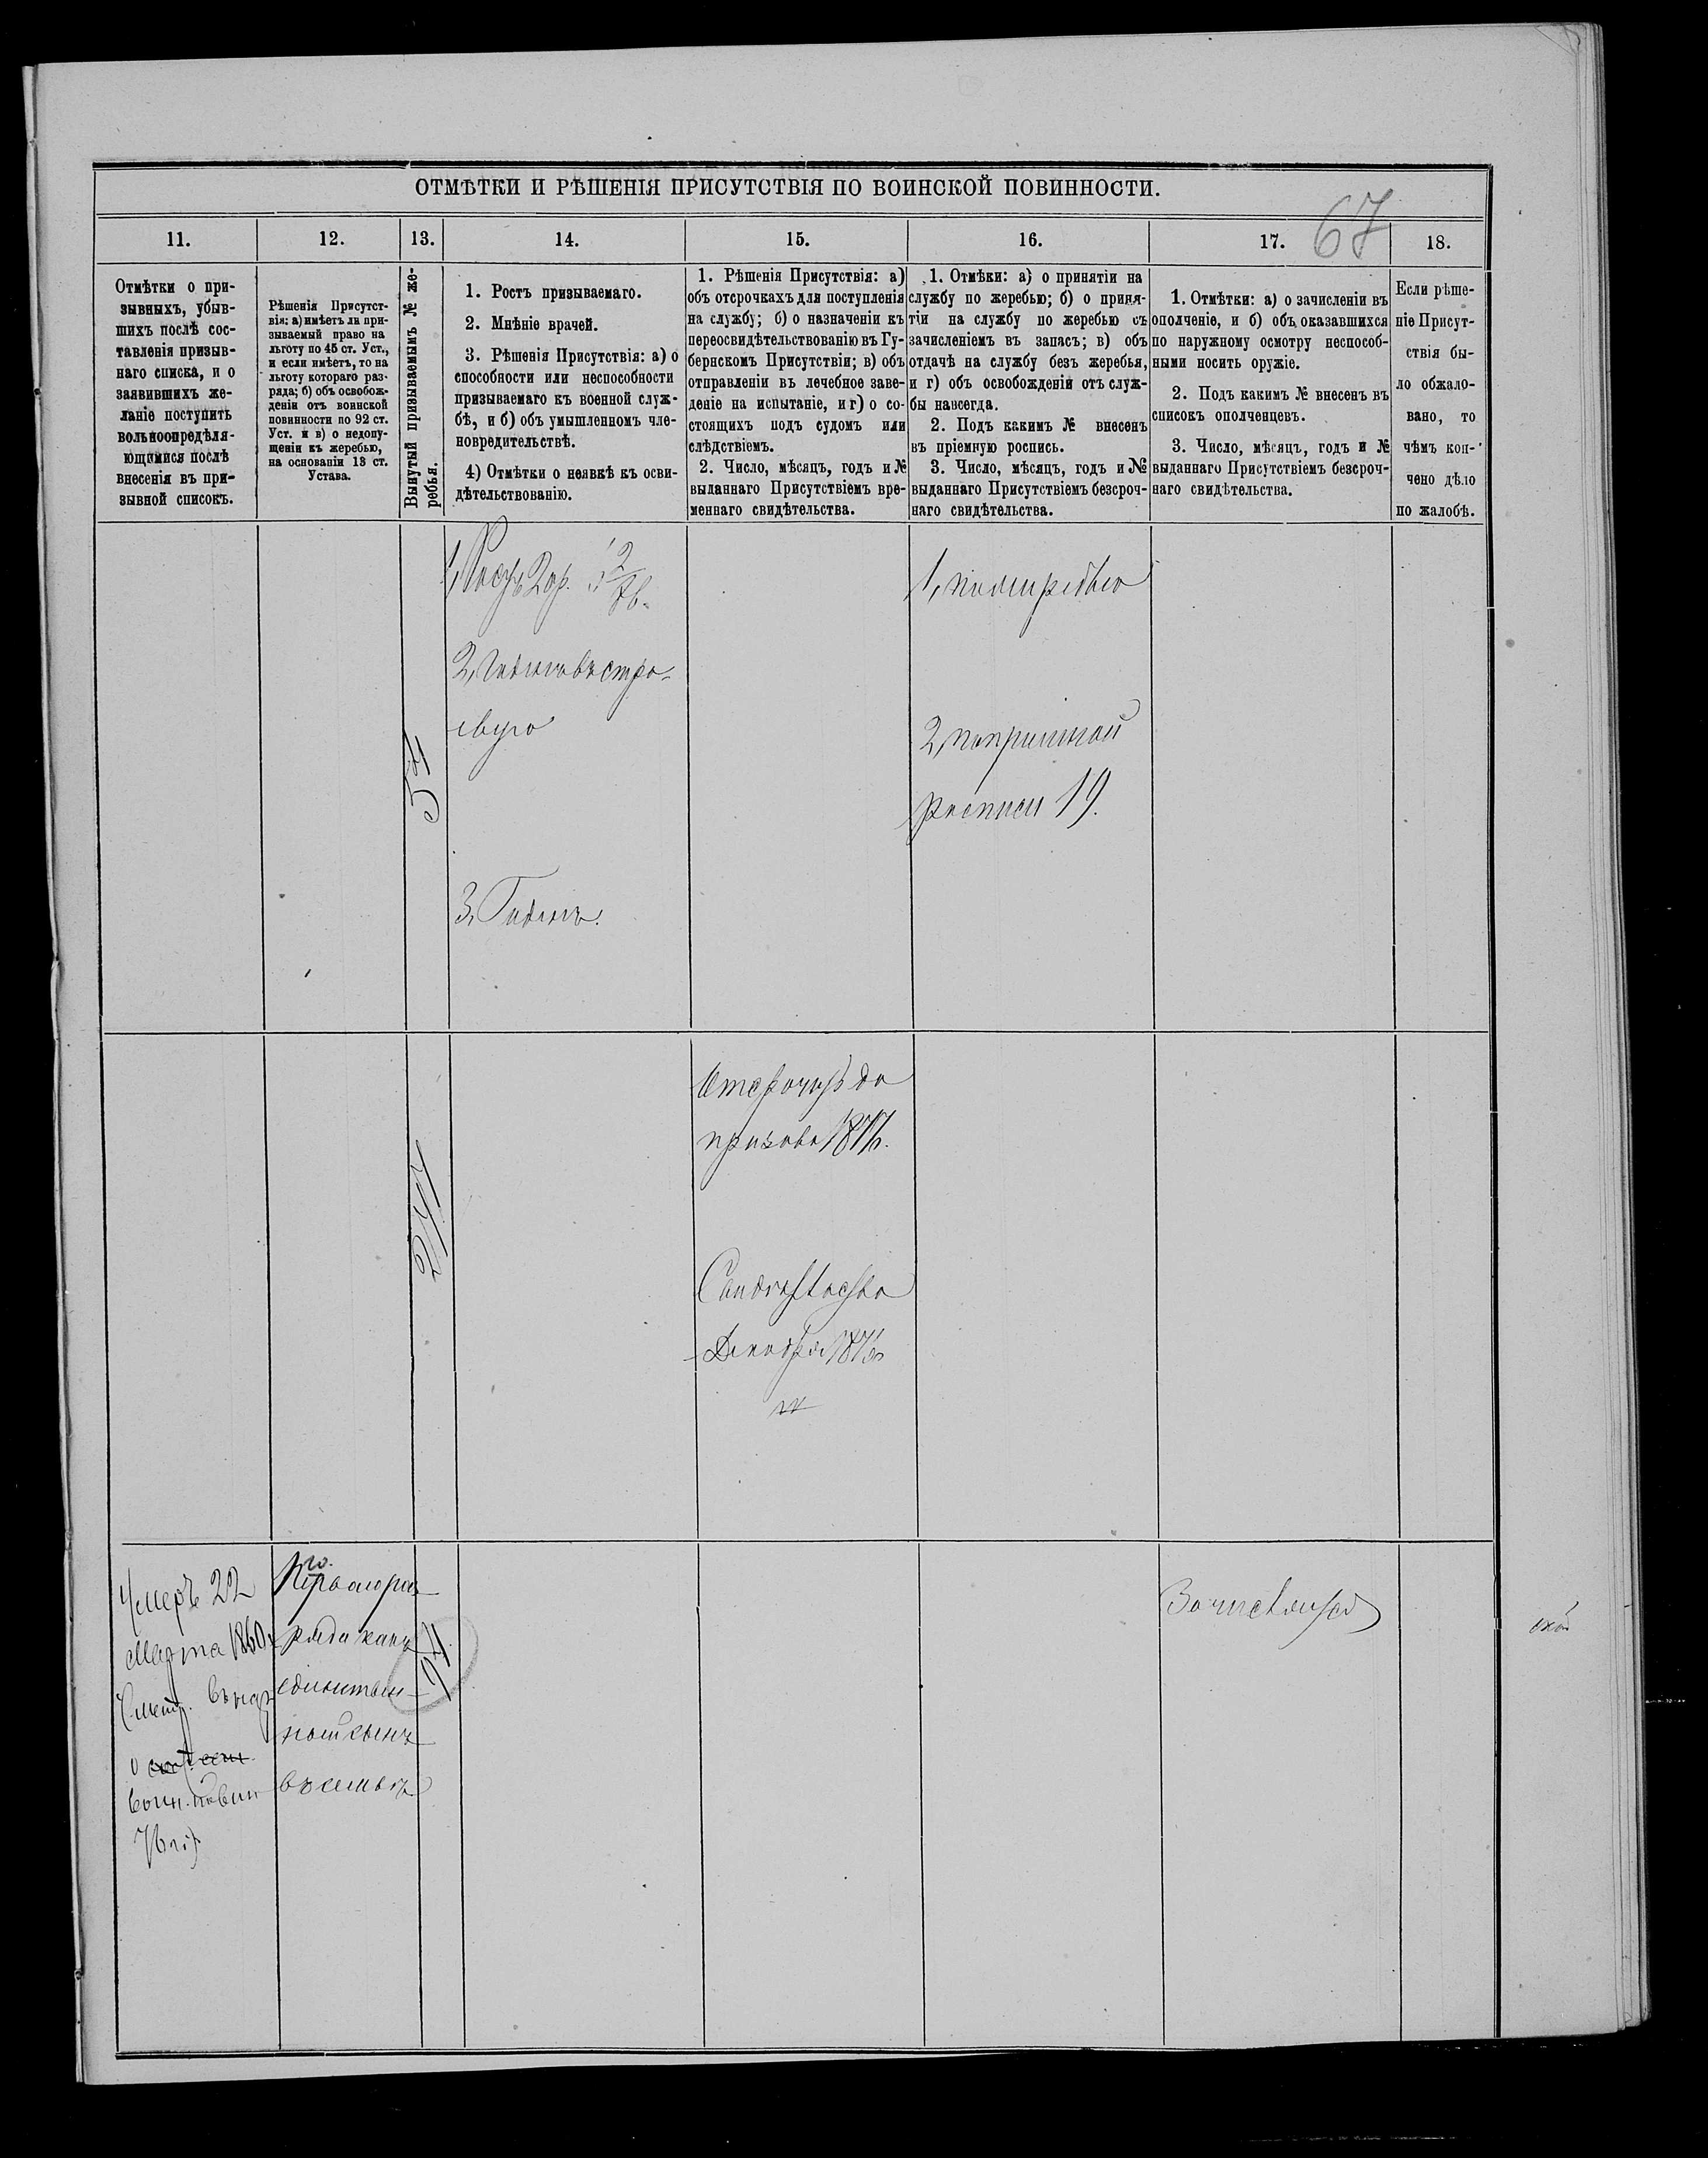 ОТМѢТКИ И РѢШЕНІЯ ПРИСУТСТВІЯ ПО ВОИНСКОЙ ПОВИННОСТИ.
67
11.
12.
13.
14.
15.
16.
17.
18.
Отмѣтки о при-
зывныхъ, убыв-
шихъ послѣ сос-
тавленія призыв-
наго списка, и о
заявившихъ же-
ланіе поступить
вольноопредѣля-
ющимися послѣ
внесенія въ при-
зывной списокъ.
Рѣшенія Присутст-
вія: а) имѣетъ ли при-
зываемый право на
льготу по 45 ст. Уст.,
и если имѣетъ, то на
льготу котораго раз-
ряда; б) объ освобож-
деніи отъ воинской
повинности по 92 ст.
Уст. и в) о недопу-
щеніи къ жеребью,
на основаніи 13 ст.
Устава.
Вынутый призываемымъ № же-
ребья.
1. Ростъ призываемаго.
2. Мнѣніе врачей.
3. Рѣшенія Присутствія: а) о
способности или неспособности
призываемаго къ военной служ-
бѣ, и б) объ умышленномъ чле-
новредительствѣ.
4) Отмѣтки о неявкѣ къ осви-
дѣтельствованію.
1. Рѣшенія Присутствія: а)
объ отсрочкахъ для поступленія
на службу; б) о назначеніи къ
переосвидѣтельствованію въ Гу-
бернскомъ Присутствіи; в) объ
отправленіи въ лечебное заве-
деніе на испытаніе, и г) о со-
стоящихъ подъ судомъ или
слѣдствіемъ.
2. Число, мѣсяцъ, годъ и №
выданнаго Присутствіемъ вре-
меннаго свидѣтельства.
1. Отмѣки: а) о принятіи на
службу по жеребью; б) о приня-
тіи на службу по жеребью съ
зачисленіемъ въ запасъ; в) объ
отдачѣ на службу безъ жеребья,
и г) объ освобожденіи отъ служ-
бы навсегда.
2. Подъ какимъ № внесенъ
въ пріемную роспись.
3. Число, мѣсяцъ, годъ и №
выданнаго Присутствіемъ безсроч-
наго свидѣтельства.
1. Отмѣтки: а) о зачисленіи въ
ополченіе, и б) объ оказавшихся
по наружному осмотру неспособ-
ными носить оружіе.
2. Подъ какимъ № внесенъ въ
списокъ ополченцевъ.
3. Число, мѣсяцъ, годъ и №
выданнаго Присутствіемъ безсроч-
наго свидѣтельства.
Если рѣше-
ніе Присут-
ствія бы-
ло обжало-
вано, то
чѣмъ кон-
чено дѣло
по жалобѣ.
54
1, Ростъ 2 ар.
2, Годенъ въ стро-
евую
3, Годенъ.
1, по жеребью
2, по пріемной
росписи 19.
Отсрочить до
призыва
Декабря
Умеръ 22
Марта
воин. повин
Перваго раз-
ряда какъ
единствен-
ный сынъ
въ семьѣ
94